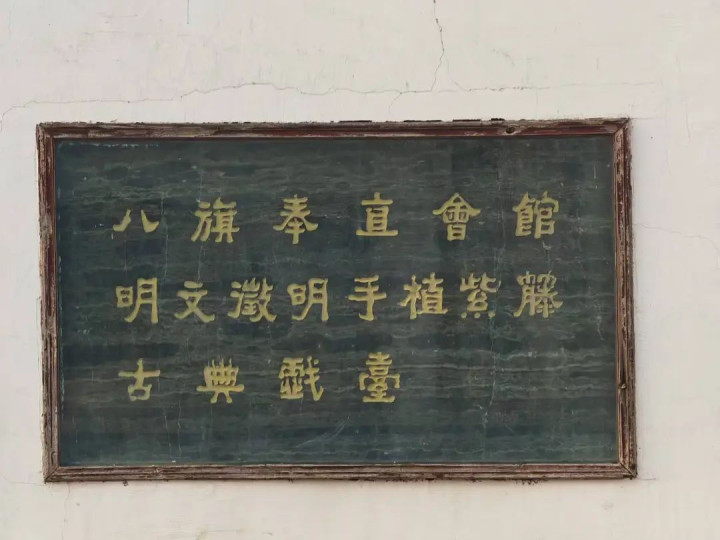 八旗奉直會館
明文徵明手植紫藤
古典戲臺